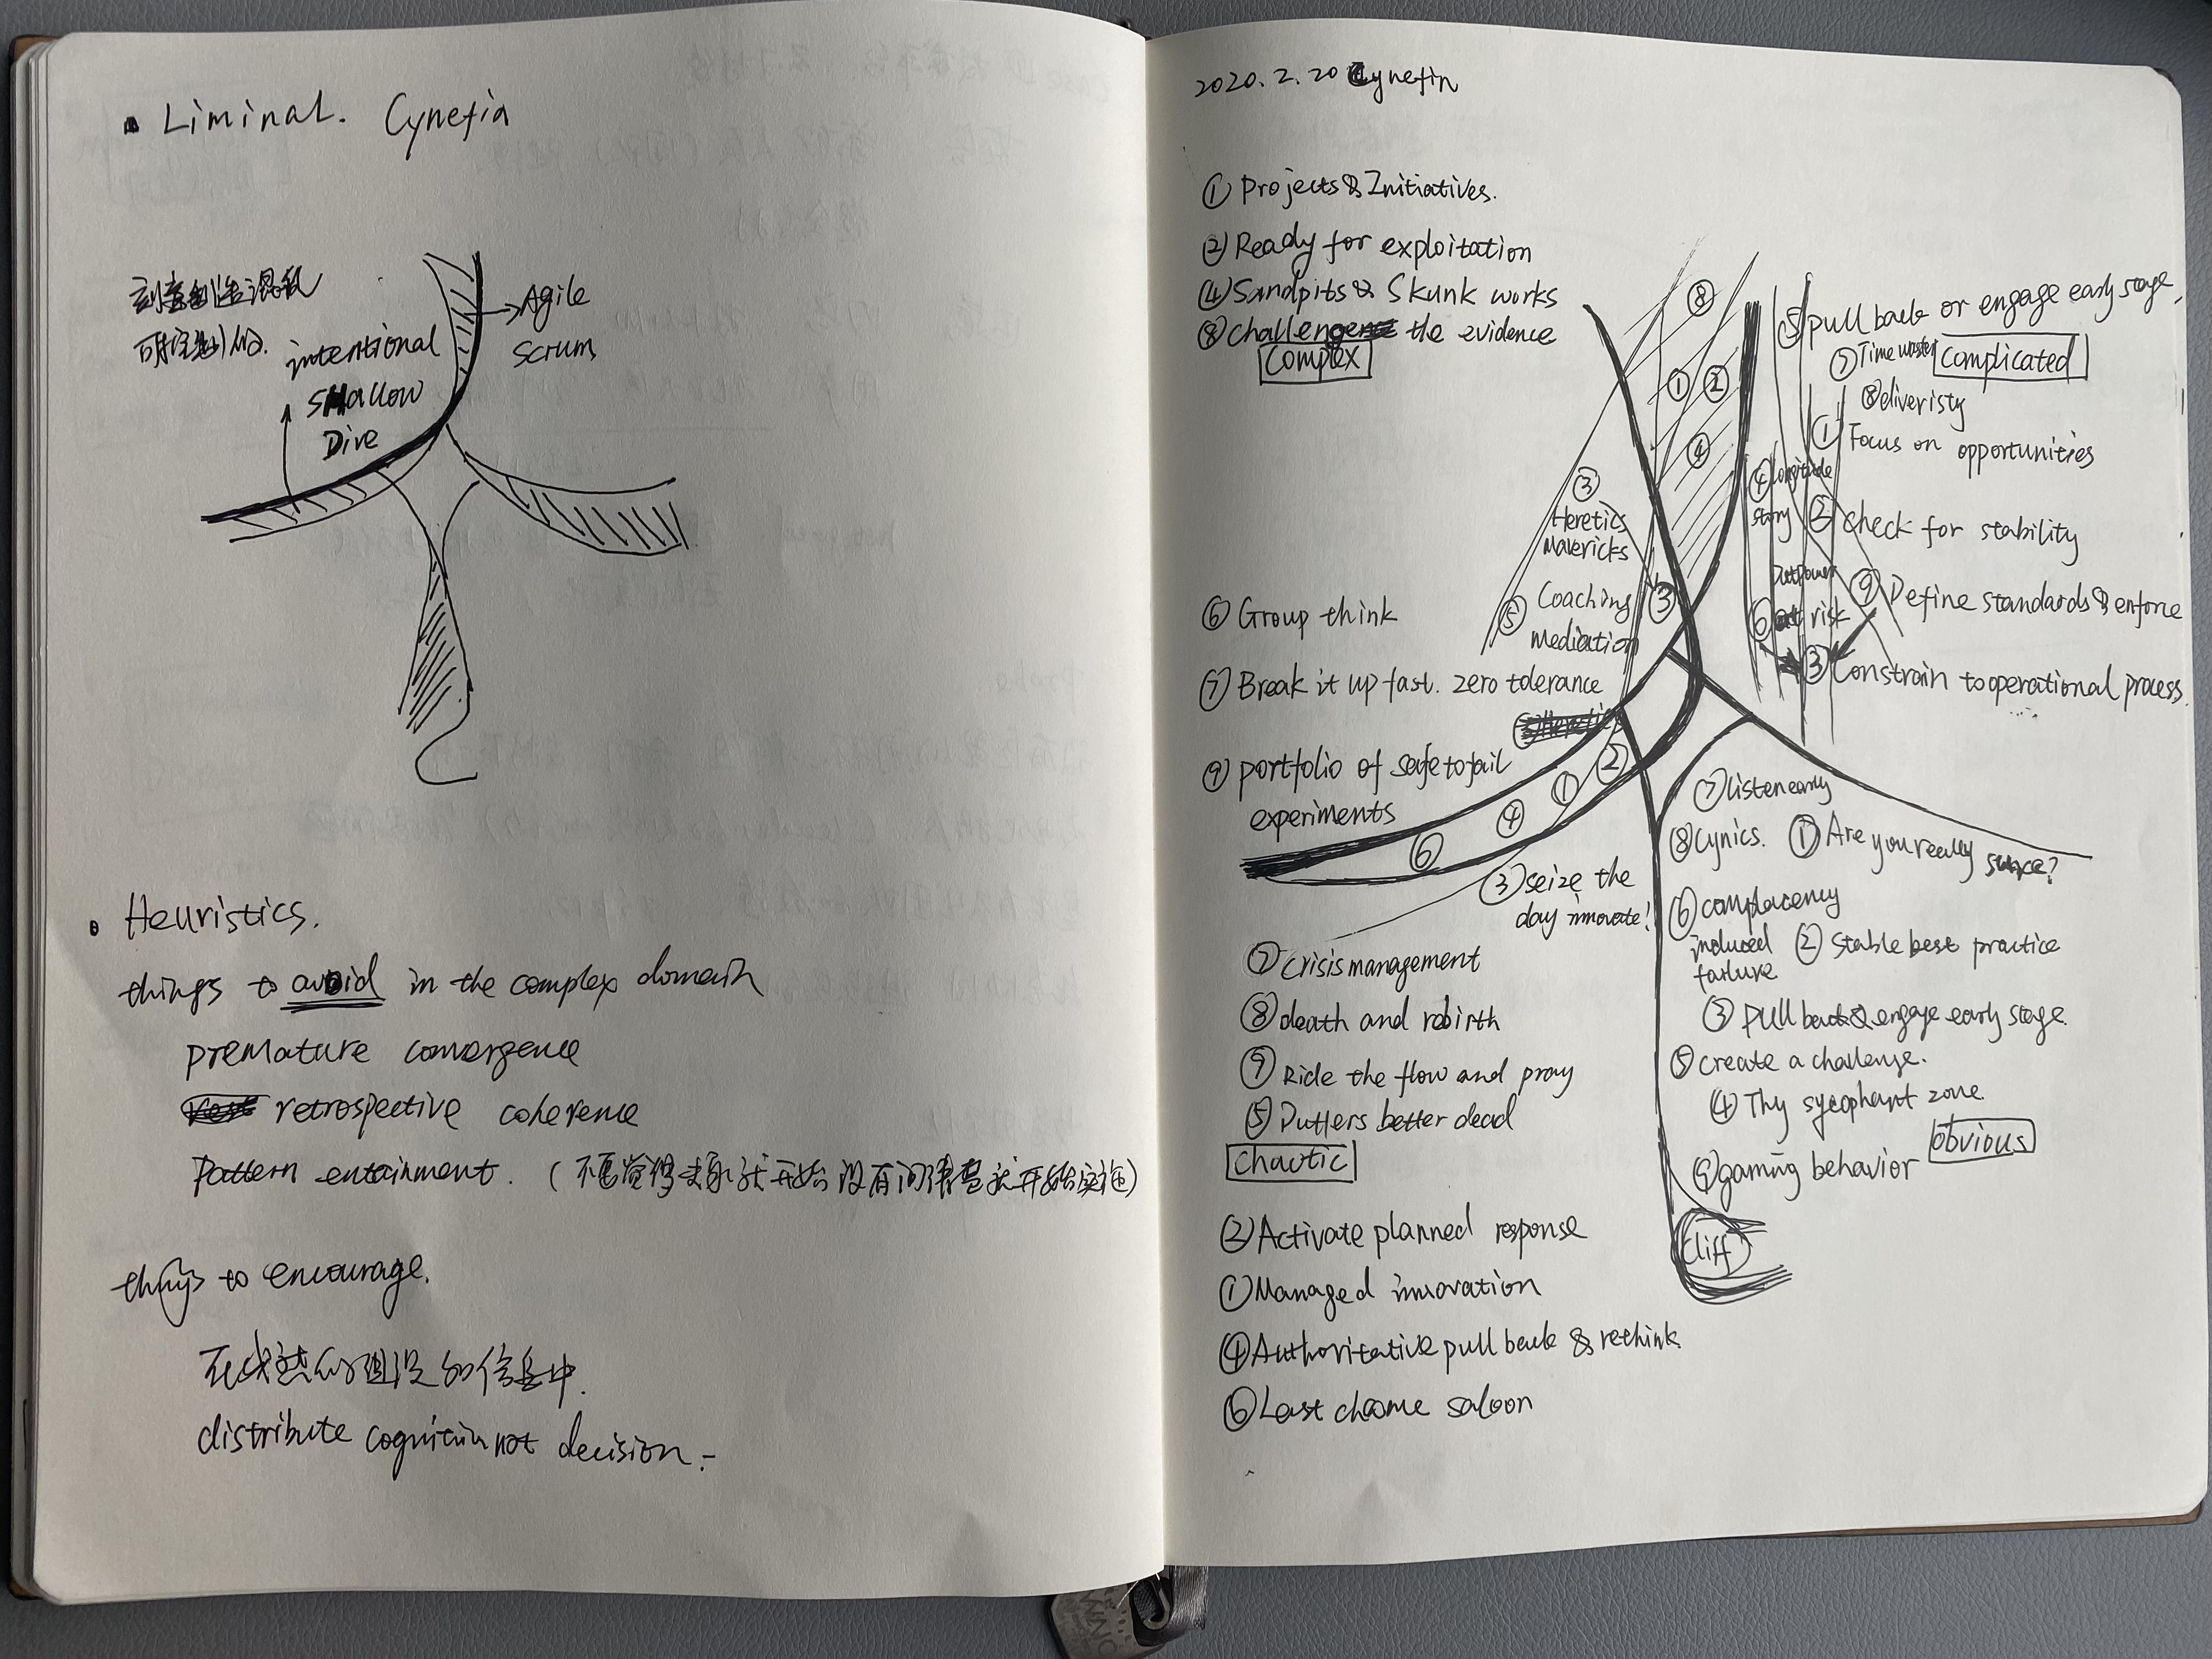 Liminal. Cynefin
刻意制造混乱
intentional
SHallow
Dive
Agile
Scrum
Heuristics.
things to avoid in the complex domain
premature convergence
retrospective coherence
Pattern entainment. (不要觉得
things to encourage.
distribute cognition not decision.
2020.2.20 Cynefin
① Projects & Initiatives.
② Ready for exploitation
④ Sandpits & Skunk works
⑧ Challenge the evidence
Complex
③
Heretics
Mavericks
⑤ Coaching
mediation
⑥ Group think
⑦ Break it up fast. zero tolerance
⑨ portfolio of safe to fail
experiments
⑧
① ②
④
③
②
①
④
⑥
⑤ pull back or engage early stage,
⑦ Time waster
Complicated
⑧ diveristy
① Focus on opportunities
④
story
② Check for stability
⑨ Define standards & enforce
⑥ at risk
③ Constrain to operational process.
③ seize the
day innovate!
⑦ Crisis management
⑧ death and rebirth
⑨ Ride the flow and pray
⑤ better dead
Chaotic
② Activate planned response
① Managed innovation
④ Authoritative pull back & rethink
⑥ Last chance saloon
⑦ listen early
⑧ Cynics. ① Are you really sure?
⑥ complacency
induced
failure
② Stable best practice
③ pull back & engage early stage.
⑤ create a challenge.
④ Thy sycophant zone.
Obvious
⑨ gaming behavior
Cliff